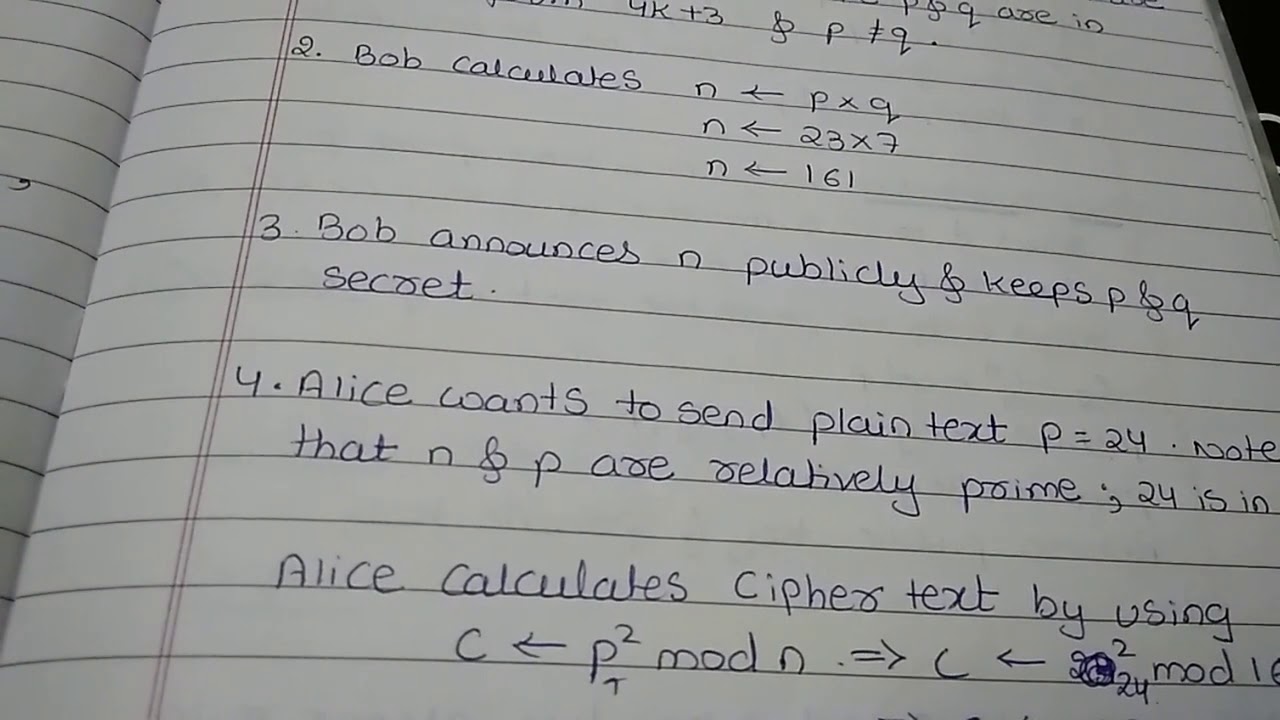 4k+3 & p ≠ q.
p & q are in
2. Bob calculates n ← p × q
n ← 23×7
n ← 161
3. Bob announces n publicly & keeps p & q
secret.
4. Alice wants to send plain text p = 24. Note
that n & p are relatively prime ; 24 is in
Alice calculates Cipher text by using
C ← p² mod n. => C ← 24² mod 16
T